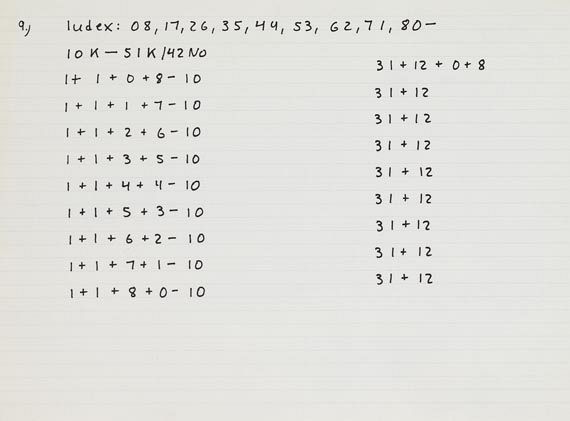 9.) Iudex: 08, 17, 26, 35, 44, 53, 62, 71, 80—
10 K — 51 K /42 No
1 + 1 + 0 + 8 — 10 31 + 12 + 0 + 8
1 + 1 + 1 + 7 — 10 31 + 12
1 + 1 + 2 + 6 — 10 31 + 12
1 + 1 + 3 + 5 — 10 31 + 12
1 + 1 + 4 + 4 — 10 31 + 12
1 + 1 + 5 + 3 — 10 31 + 12
1 + 1 + 6 + 2 — 10 31 + 12
1 + 1 + 7 + 1 — 10 31 + 12
1 + 1 + 8 + 0 — 10 31 + 12